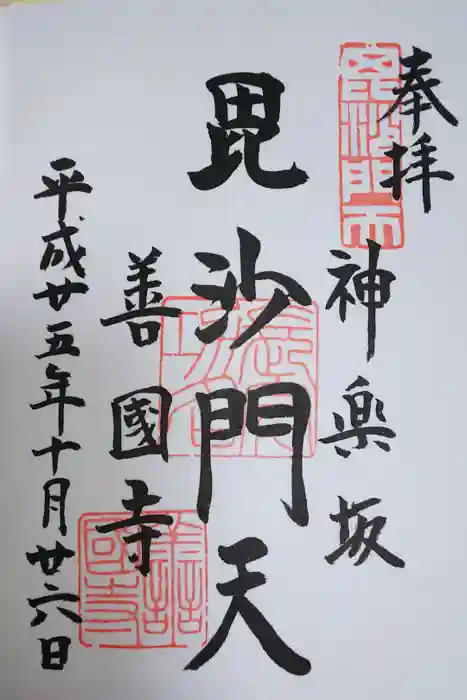 奉拝
毘沙門天
神楽坂
毘沙門天
善國寺
平成廿五年十月廿六日